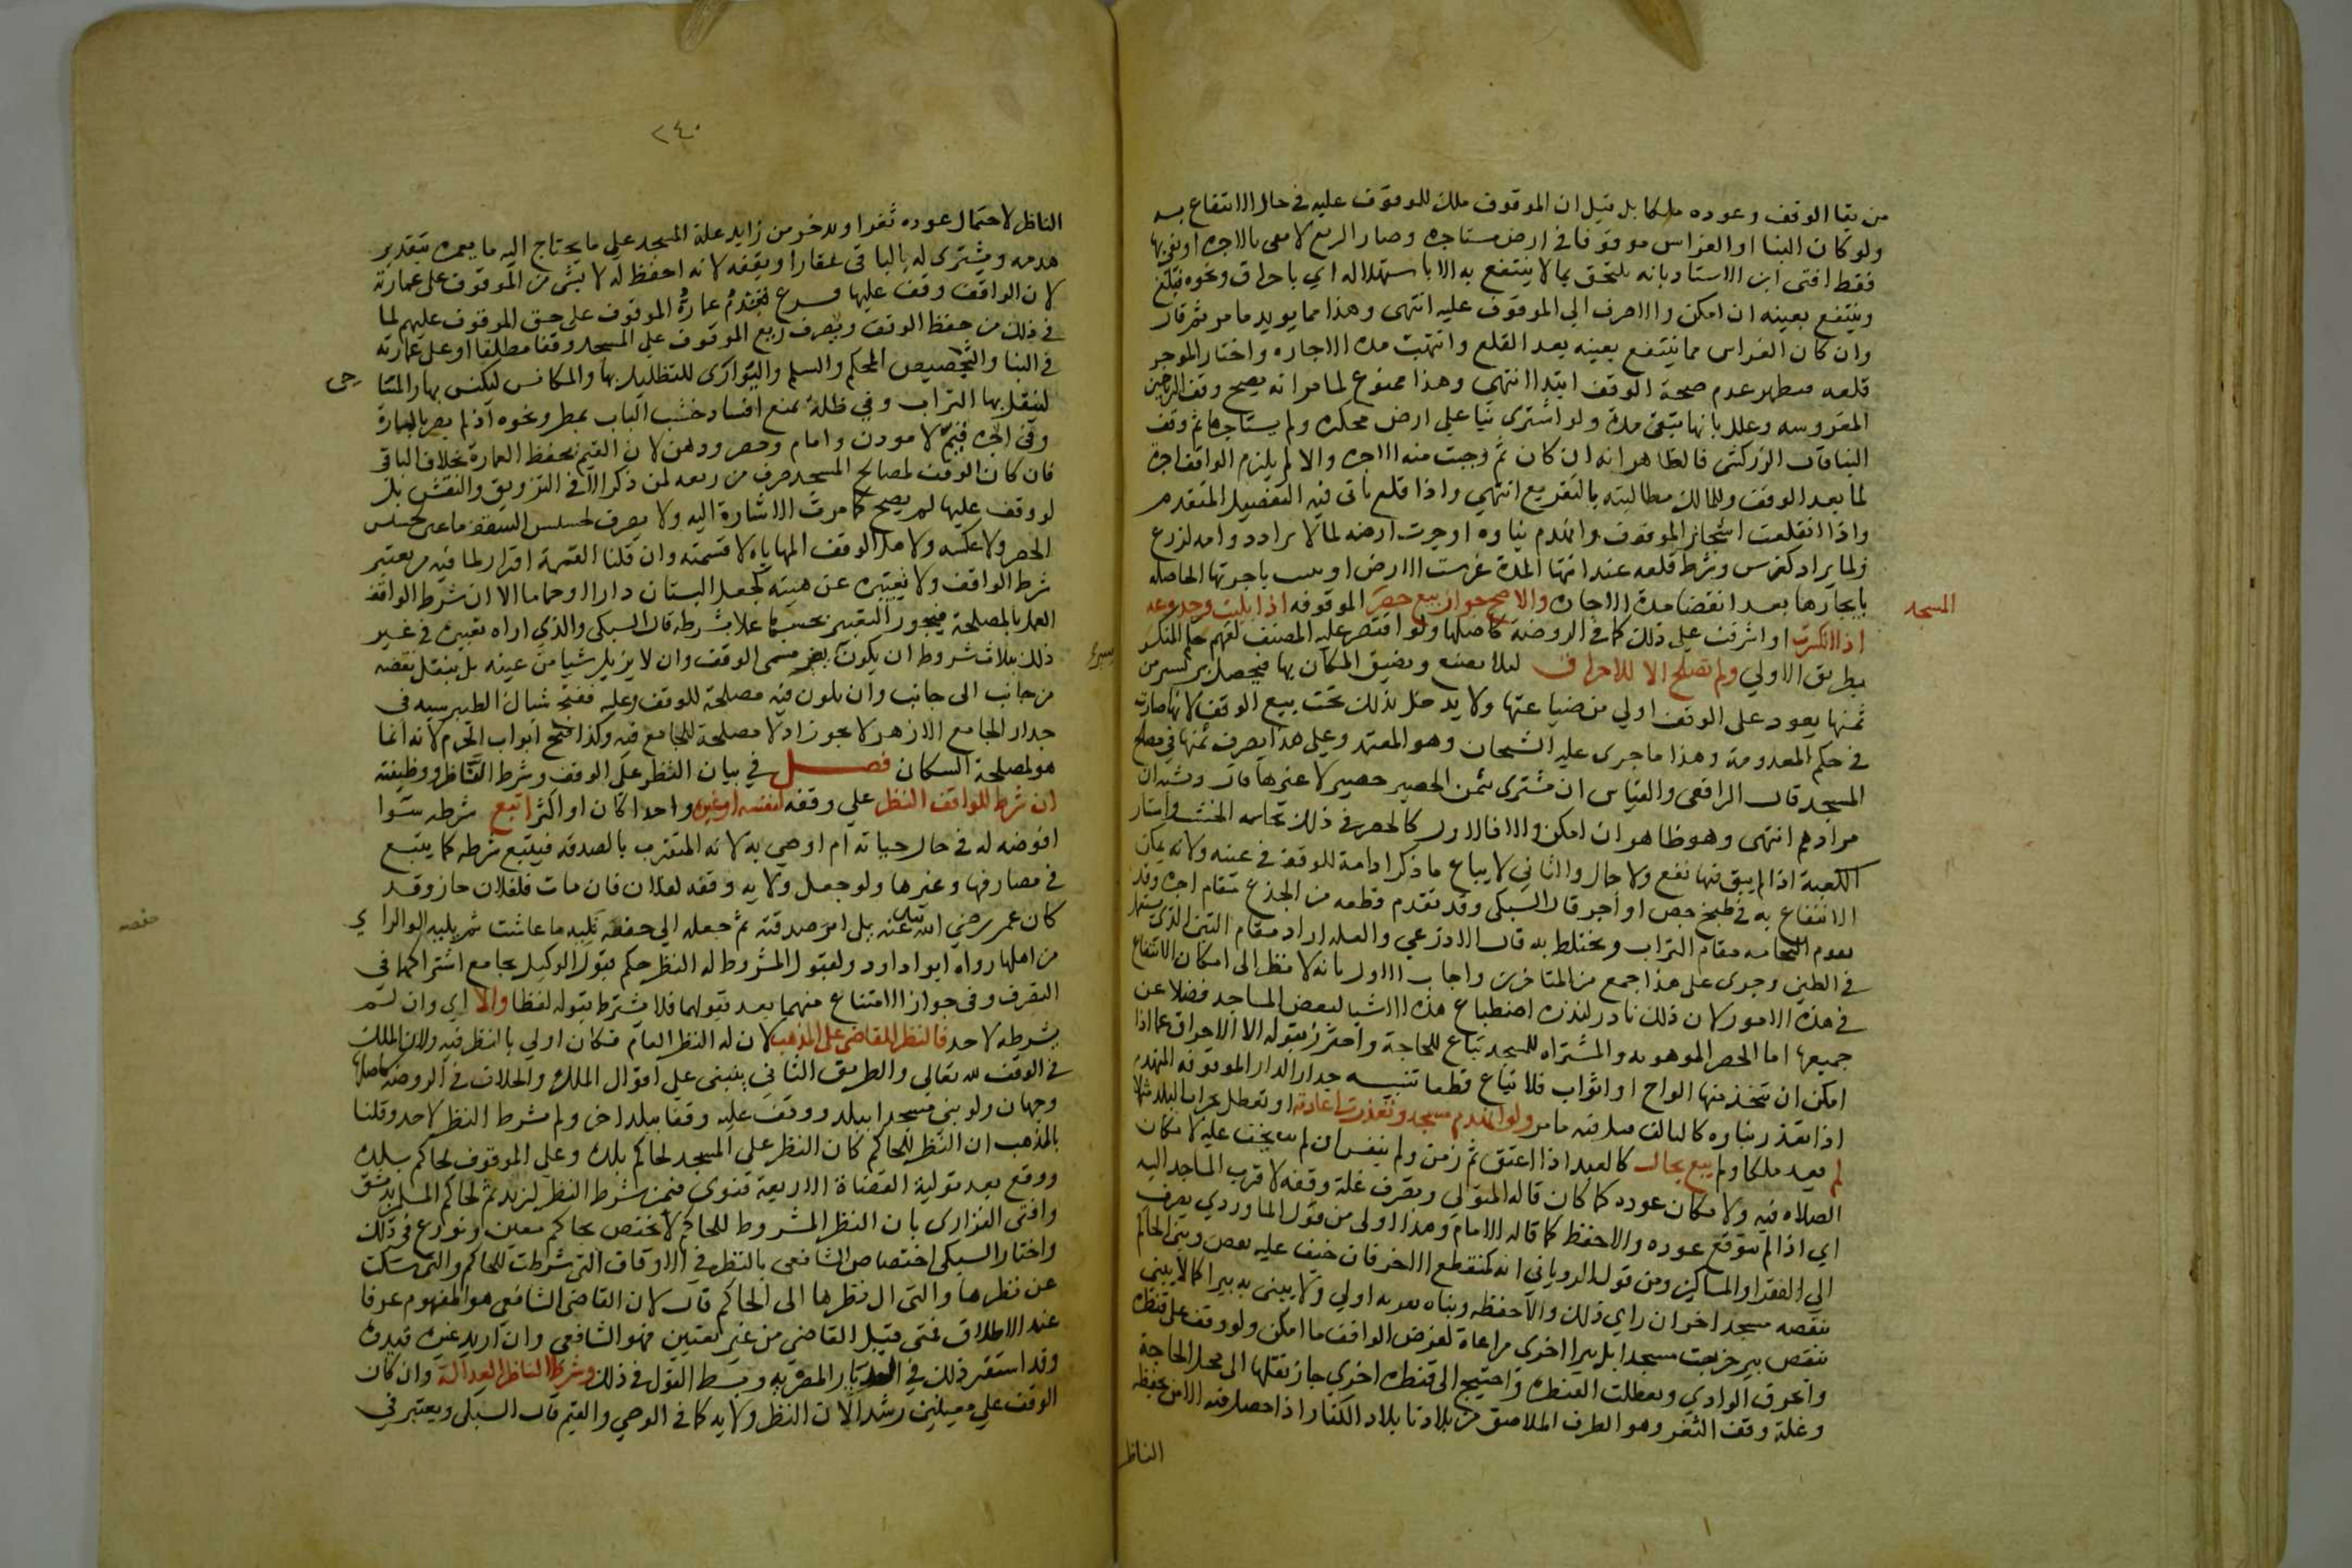 من بقا الوقف وعوده ملكا بل قيل ان الموقوف ملك للموقوف عليه في حال الانتفاع به
ولو كان البنا او الغراس موقوفا في ارض مستاجره وصار الريع لا يفي بالاجره او يفي بها
فقط افتى ابن الاستاد بانه يلتحق بما لا ينتفع به الا باستهلاكه اي باحراق ونحوه فيقلع
وينتفع بعينه ان امكن والا صرف الي الموقوف عليه انتهى وهذا مما يويد ما مر ثم قال
وان كان الغراس مما ينتفع بعينه بعد القلع وانتهت مده الاجاره واختار الموجر
قلعه فيظهر عدم صحة الوقف ابتدا انتهي وهذا ممنوع لما مر انه يصح وقف الرياحين
المغروسه وعلل بانها تبقى مدة ولو اشترى بنا على ارض محكره ولم يستاجرها ثم وقف
البنا قال الزركشي فالظاهر انه ان كان ثم وجبت منه الاجره والا لم يلزم الواقف اجرة
لما بعد الوقف وللمالك مطالبته بالتفريع انتهي واذا قلع ياتى فيه التفصيل المتقدم
واذا انقلعت اشجار الموقوف وانهدم بناوه اوجرت ارضه لما لا يراد دوامه لزرع
ولما يراد كغرس وشرط قلعه عند انتها المدة غرست الارض او بنيت باجرتها الحاصله
بايجارها بعد انقضا مدة الاجاره والاصح جواز بيع حصر الموقوفه اذا بليت وجذوعه
المسجد
اذا انكسرت او اشرفت على ذلك كما في الروضه كاصلها ولو اقتصر عليه المصنف لفهم حكم المنكسر
بطريق الاولي ولم تصلح الا للاحراق ليلا تضيع ويضيق المكان بها فتحصل يسير من
ثمنها يعود على الوقف اولي من ضياعتها ولا يدخل بذلك تحت بيع الوقف لانها صارت
في حكم المعدومة وهذا ما جرى عليه الشيخان وهو المعتمد وعلي هذا يصرف ثمنها في مصالح
المسجد قال الرافعي والقياس ان يشترى بثمن الحصير حصير لا غيرها قال ويشبه ان
مرادهم انتهى وهو ظاهر ان امكن والا فالاول كالحصر في ذلك نحاسه الخشب واستار
الكعبة اذا لم يبق فيها نفع ولا جمال والثاني لا يباع ما ذكر ادامة للوقف في عينه ولانه يمكن
الانتفاع به في طبخ جص او أجر قال السبكى وقد تقدم قطعه من الجذع مقام اجره وقد
تقوم النحاسه مقام التراب ويختلط به قال الاذرعي والعله اراد مقام التبن الذي يستعمل
في الطين وجرى على هذا جمع من المتاخرين واجاب الاول بانه لا نظر الى امكان الانتفاع
في هذه الامور لان ذلك نادر لندرة اصطباع هذه الاشيا لبعض المساجد فضلا عن
جميعها اما الحصر الموهوبه والمشتراه للمسجد تباع للحاجة واحترز بقوله الا للاحراق عما اذا
امكن ان يتخذ منها الواح او ابواب فلا تباع قطعا تنبيه جدار الدار الموقوفه المنهدم
اذا تعذر بناوه كالتالف فيل فيه ما مر ولو انهدم مسجد وتعذرت اعادته او تعطل بخراب البلد مثلا
لم يعد ملكا ولم يبع بحال كالعبد اذا اعتق ثم زمن ولم ينقض ان لم يخف عليه لامكان
الصلاه فيه ولامكان عوده كما كان قاله المتولي وتصرف غلة وقفه لاقرب المساجد اليه
اي اذا لم يتوقع عوده والا حفظ كما قاله الامام وهذا اولى من قول الماوردي يصرف
الي الفقرا والمساكين ومن قول الروياني انه كمنقطع الاخر فان خيف عليه نقض وبنى الحاكم
بنقضه مسجدا اخر ان راي ذلك والا حفظه وبناه بقربه اولي ولا يبنى به بيرا كما لا يبنى
بنقض بير خربت مسجدا بل بيرا اخرى مراعاة لغرض الواقف ما امكن ولو وقف على قنطرة
وانحرق الوادي وتعطلت القنطره واحتيج الى قنطره اخري جاز نقلها الى محل الحاجة
وغلة وقف الثغر وهو الطرف الملاصق من بلادنا بلاد الكفار اذا حصل فيه الامن يحفظه
الناظر
٢٤٠
الناظر لاحتمال عوده ثغرا ويدخر من زايد غلة المسجد على ما يحتاج اليه ما يعمره بتقدير
هدمه ويشترى له بالباقى عقارا ويقفه لانه احفظ له لا بشى من الموقوف على عمارته
لان الواقف وقف عليها فرع تتقدم عمارة الموقوف على حق الموقوف عليهم لما
في ذلك من حفظ الوقف ويصرف ريع الموقوف على المسجد وقفا مطلقا او على عمارته
في البنا والتجصيص المحكم والسلم والبواري للتظليل بها والمكانس ليكنس بها والمساحى
لينقل بها التراب وفي ظلة تمنع افساد خشب الباب بمطر ونحوه اذ لم يضر بالمارة
وفى اجره قيم لا موذن وامام وحصر ودهن لان القيم يحفظ العمارة بخلاف الباقى
فان كان الوقف لمصالح المسجد صرف من ريعه لمن ذكر لا في التزويق والنقش بل
لو وقف عليها لم يصح كما مرت الاشارة اليه ولا يصرف لحشيش السقف ما عين لحشيش
الحصر ولا عكسه ولاهل الوقف المهاياه لا قسمته وان قلنا القسمة افراز لما فيه من تغيير
شرط الواقف ولا تغييره عن هيئته كجعل البستان دارا او حماما الا ان شرط الواقف
العمل بالمصلحة فيجوز التغيير بحسبها عملا بشرطه قال السبكى والذي اراه تغييره في غير
ذلك بثلاث شروط ان يكون يسيرا لا يغير مسمى الوقف وان لا يزيل شيا من عينه بل ينقل نقضه
من جانب الى جانب وان يكون فيه مصلحة للوقف وعليه ففتح شباك الطيبرسيه في
جدار الجامع الازهر لا يجوز اذ لا مصلحة للجامع فيه وكذا فتح ابواب الحرم لانه انما
هو لمصلحة السكان فصل في بيان النظر على الوقف وشرط الناظر ووظيفته
ان شرط الواقف النظر على وقفه لنفسه او غيره واحدا كان او اكثر اتبع شرطه سوا
افوضه له في حال حياته ام اوصى به لانه المتقرب بالصدقه فيتبع شرطه كما يتبع
في مصارفها وغيرها ولو جعل ولاية وقفه لفلان فان مات فلفلان جاز وقد
كان عمر رضي الله عنه يلى امر صدقته ثم جعله الي حفصة تليه ما عاشت ثم يليه اولوا الراي
حفصه
من اهلها رواه ابوا داود ولقبول المشروط له النظر حكم قبول الوكيل بجامع اشتراكهما في
التصرف وفى جواز الامتناع منهما بعد قبولهما فلا يشترط قبوله لفظا والا اي وان لم
يشرطه لاحد فالنظر للقاضى على المذهب لان له النظر العام فكان اولي بالنظر فيه ولان الملك
في الوقف لله تعالى والطريق الثاني ينبنى على اقوال الملك والخلاف في الروضه كاصلها
وجهان ولو بنى مسجدا ببلد ووقف عليه وقفا ببلد اخر ولم يشرط النظر لاحد وقلنا
بالمذهب ان النظر للحاكم كان النظر على المسجد لحاكم بلده وعلى الموقوف لحاكم بلده
ووقع بعد تولية القضاة الاربعة فتوى فيمن شرط النظر لزيد ثم لحاكم المسلمين بدمشق
وافتى الفزارى بان النظر المشروط للحاكم لا يختص بحاكم معين ونوزع في ذلك
واختار السبكى اختصاص الشافعى بالنظر في الاوقاف التى شرطت للحاكم والتى سكت
عن نظرها والتى ال نظرها الى الحاكم قال لان القاضى الشافعي هو المفهوم عرفا
عند الاطلاق فمتى قيل القاضى من غير تعيين فهو الشافعى وان اريد غيره قيدوه
وقد استقر ذلك في الديار المصريه وبسط القول في ذلك وشرط الناظر العدالة وان كان
الوقف على معينين رشدا لان النظر ولايه كما في الوصي والقيم قال السبكى ويعتبر في